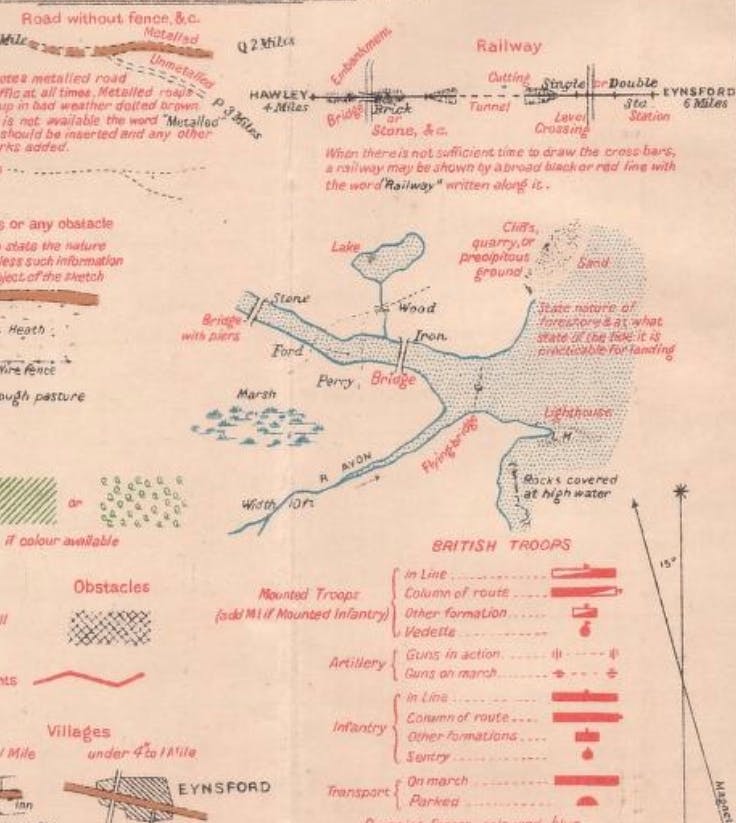 Road without fence, &c.
Mile
Metalled
Q 2 Miles
Unmetalled
P 3 Miles
ote a metalled road
ffic at all times. Metalled roads
up in bad weather dotted brown.
is not available the word "Metalled"
should be inserted and any other
rks added.
Railway
Embankment
Cutting
Single or Double
HAWLEY
4 Miles
EYNSFORD
6 Miles
Bridge
Brick
or
Stone, &c.
Tunnel
Level
Crossing
Sta
Station
When there is not sufficient time to draw the cross-bars,
a railway may be shown by a broad black or red line with
the word "Railway" written along it.
s or any obstacle
state the nature
less such information
bject of the sketch
Heath
Wire fence
ough pasture
Lake
Cliffs,
quarry, or
precipitous
ground
Sand
Stone
Wood
Bridge
with piers
Iron
State nature of
foreshore & at what
state of the tide it is
practicable for landing
Ford
Ferry
Bridge
Marsh
Lighthouse
L.H.
Flying bridge
R AVON
Rocks covered
at high water
Width 10ft
or
if colour available
Obstacles
ll
nts
Villages
Mile
under 4" to 1 Mile
Inn
EYNSFORD
BRITISH TROOPS
Mounted Troops
(add M.I. if Mounted Infantry)
In Line
Column of route
Other formation
Vedette
Artillery
Guns in action
Guns on march
Infantry
In Line
Column of route
Other formations
Sentry
Transport
On march
Parked
15°
Magnet